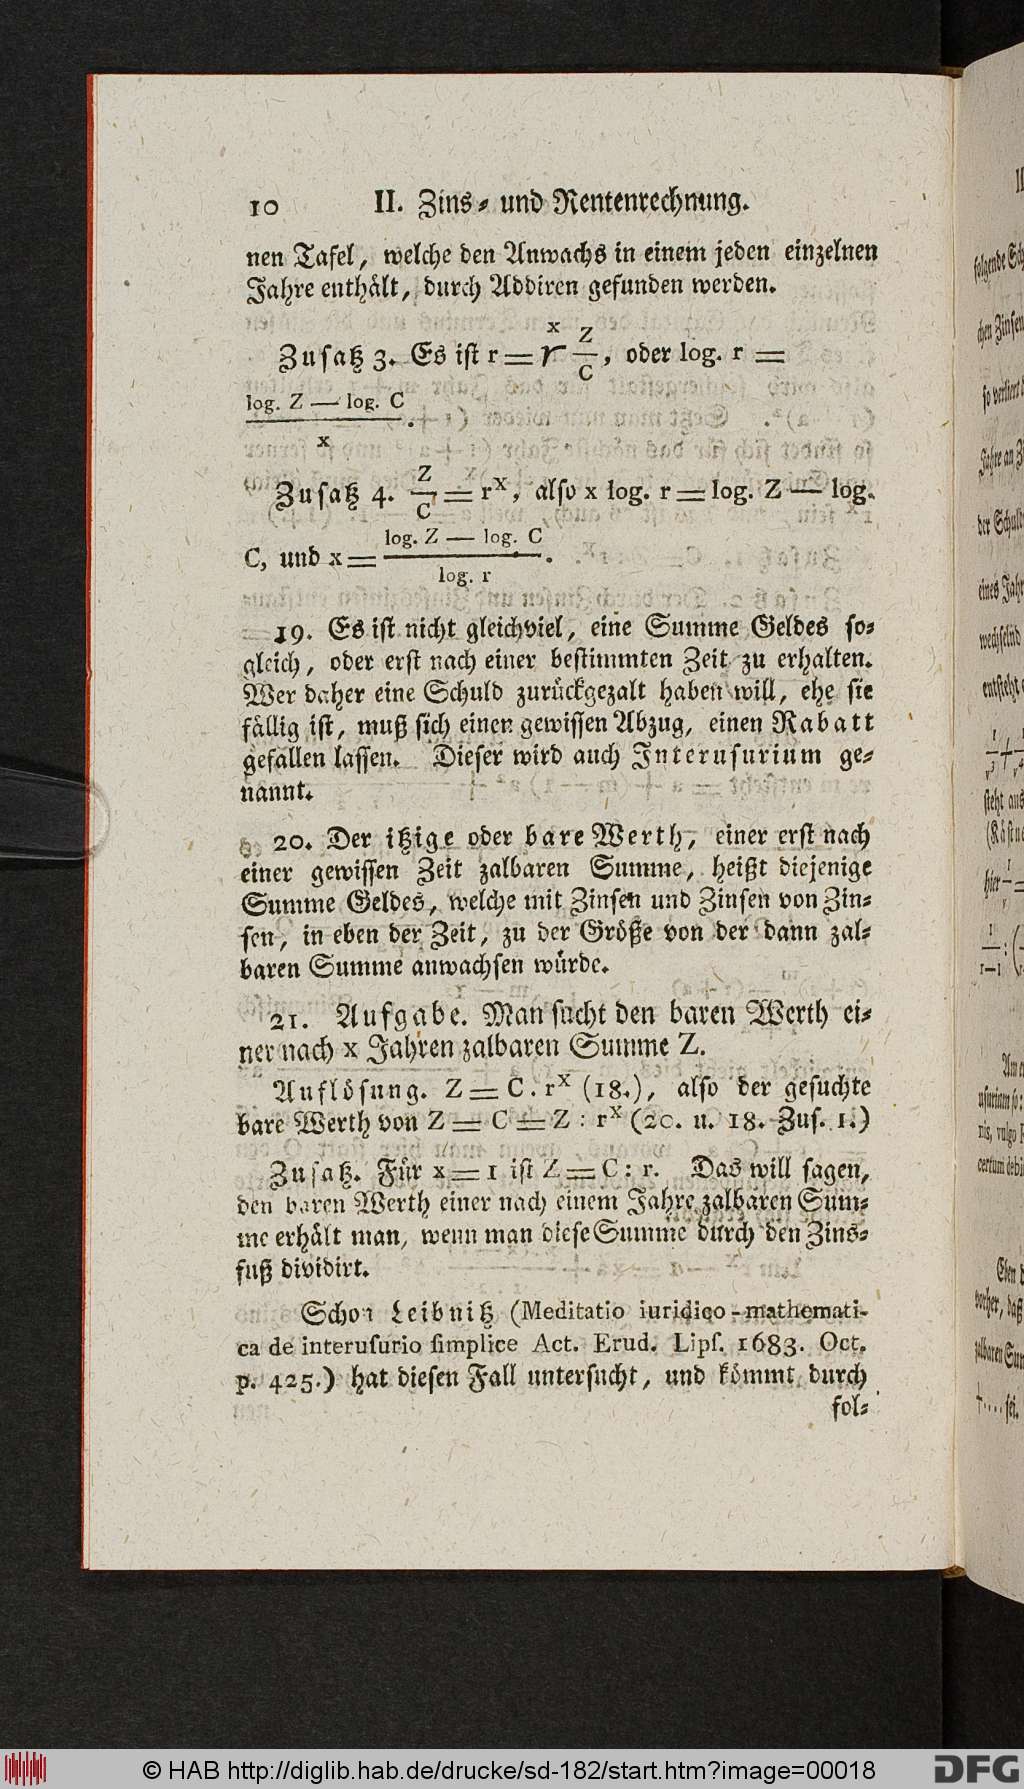 10 II. Zins- und Rentenrechnung.
nen Tafel, welche den Anwachs in einem jeden einzelnen
Jahre enthält, durch Addiren gefunden werden.
Zusatz 3. Es ist r = \sqrt[x]{\frac{Z}{C}}, oder log. r =
\frac{log. Z — log. C}{x}.
Zusatz 4. \frac{Z}{C} = r^x, also x log. r = log. Z — log.
C, und x = \frac{log. Z — log. C}{log. r}.
19. Es ist nicht gleichviel, eine Summe Geldes so-
gleich, oder erst nach einer bestimmten Zeit zu erhalten.
Wer daher eine Schuld zurückgezalt haben will, ehe sie
fällig ist, muß sich einen gewissen Abzug, einen Rabatt
gefallen lassen. Dieser wird auch Interusurium ge-
nannt.
20. Der itzige oder bare Werth, einer erst nach
einer gewissen Zeit zalbaren Summe, heißt diejenige
Summe Geldes, welche mit Zinsen und Zinsen von Zin-
sen, in eben der Zeit, zu der Größe von der dann zal-
baren Summe anwachsen würde.
21. Aufgabe. Man sucht den baren Werth ei-
ner nach x Jahren zalbaren Summe Z.
Auflösung. Z = C . r^x (18.), also der gesuchte
bare Werth von Z = C = Z : r^x (20. u. 18. Zus. 1.)
Zusatz. Für x = 1 ist Z = C : r. Das will sagen,
den baren Werth einer nach einem Jahre zalbaren Sum-
me erhält man, wenn man diese Summe durch den Zins-
fuß dividirt.
Schon Leibnitz (Meditatio iuridico-mathemati-
ca de interusurio simplice Act. Erud. Lips. 1683. Oct.
p. 425.) hat diesen Fall untersucht, und kömmt durch
fol-
© HAB http://diglib.hab.de/drucke/sd-182/start.htm?image=00018
DFG